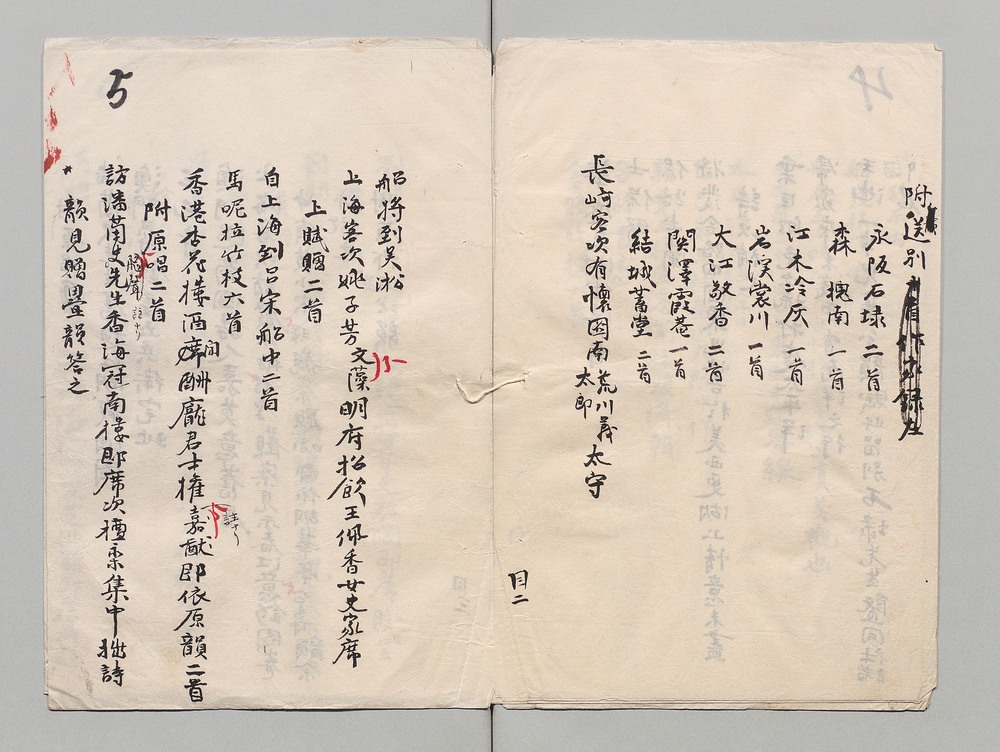 附送別
永阪石埭 二首
森 槐南 一首
江木冷灰 一首
岩渓裳川 一首
大江敬香 二首
関澤霞菴 一首
結城蓄堂 二首
長崎客次有懷囧南荒川義太郎太守
目二
5
船将到吴淞
上海客次姚子芳文藻明府招飲王佩香女史家席
上賦贈二首
自上海到呂宋船中二首
馬呢拉竹枝六首
香港杏花樓酒間酬龐君士權嘉猷即依原韻二首
附原唱二首
訪潘蘭史先生香海冠南樓即席次檀欒集中拙詩
韻見贈畳韻答之